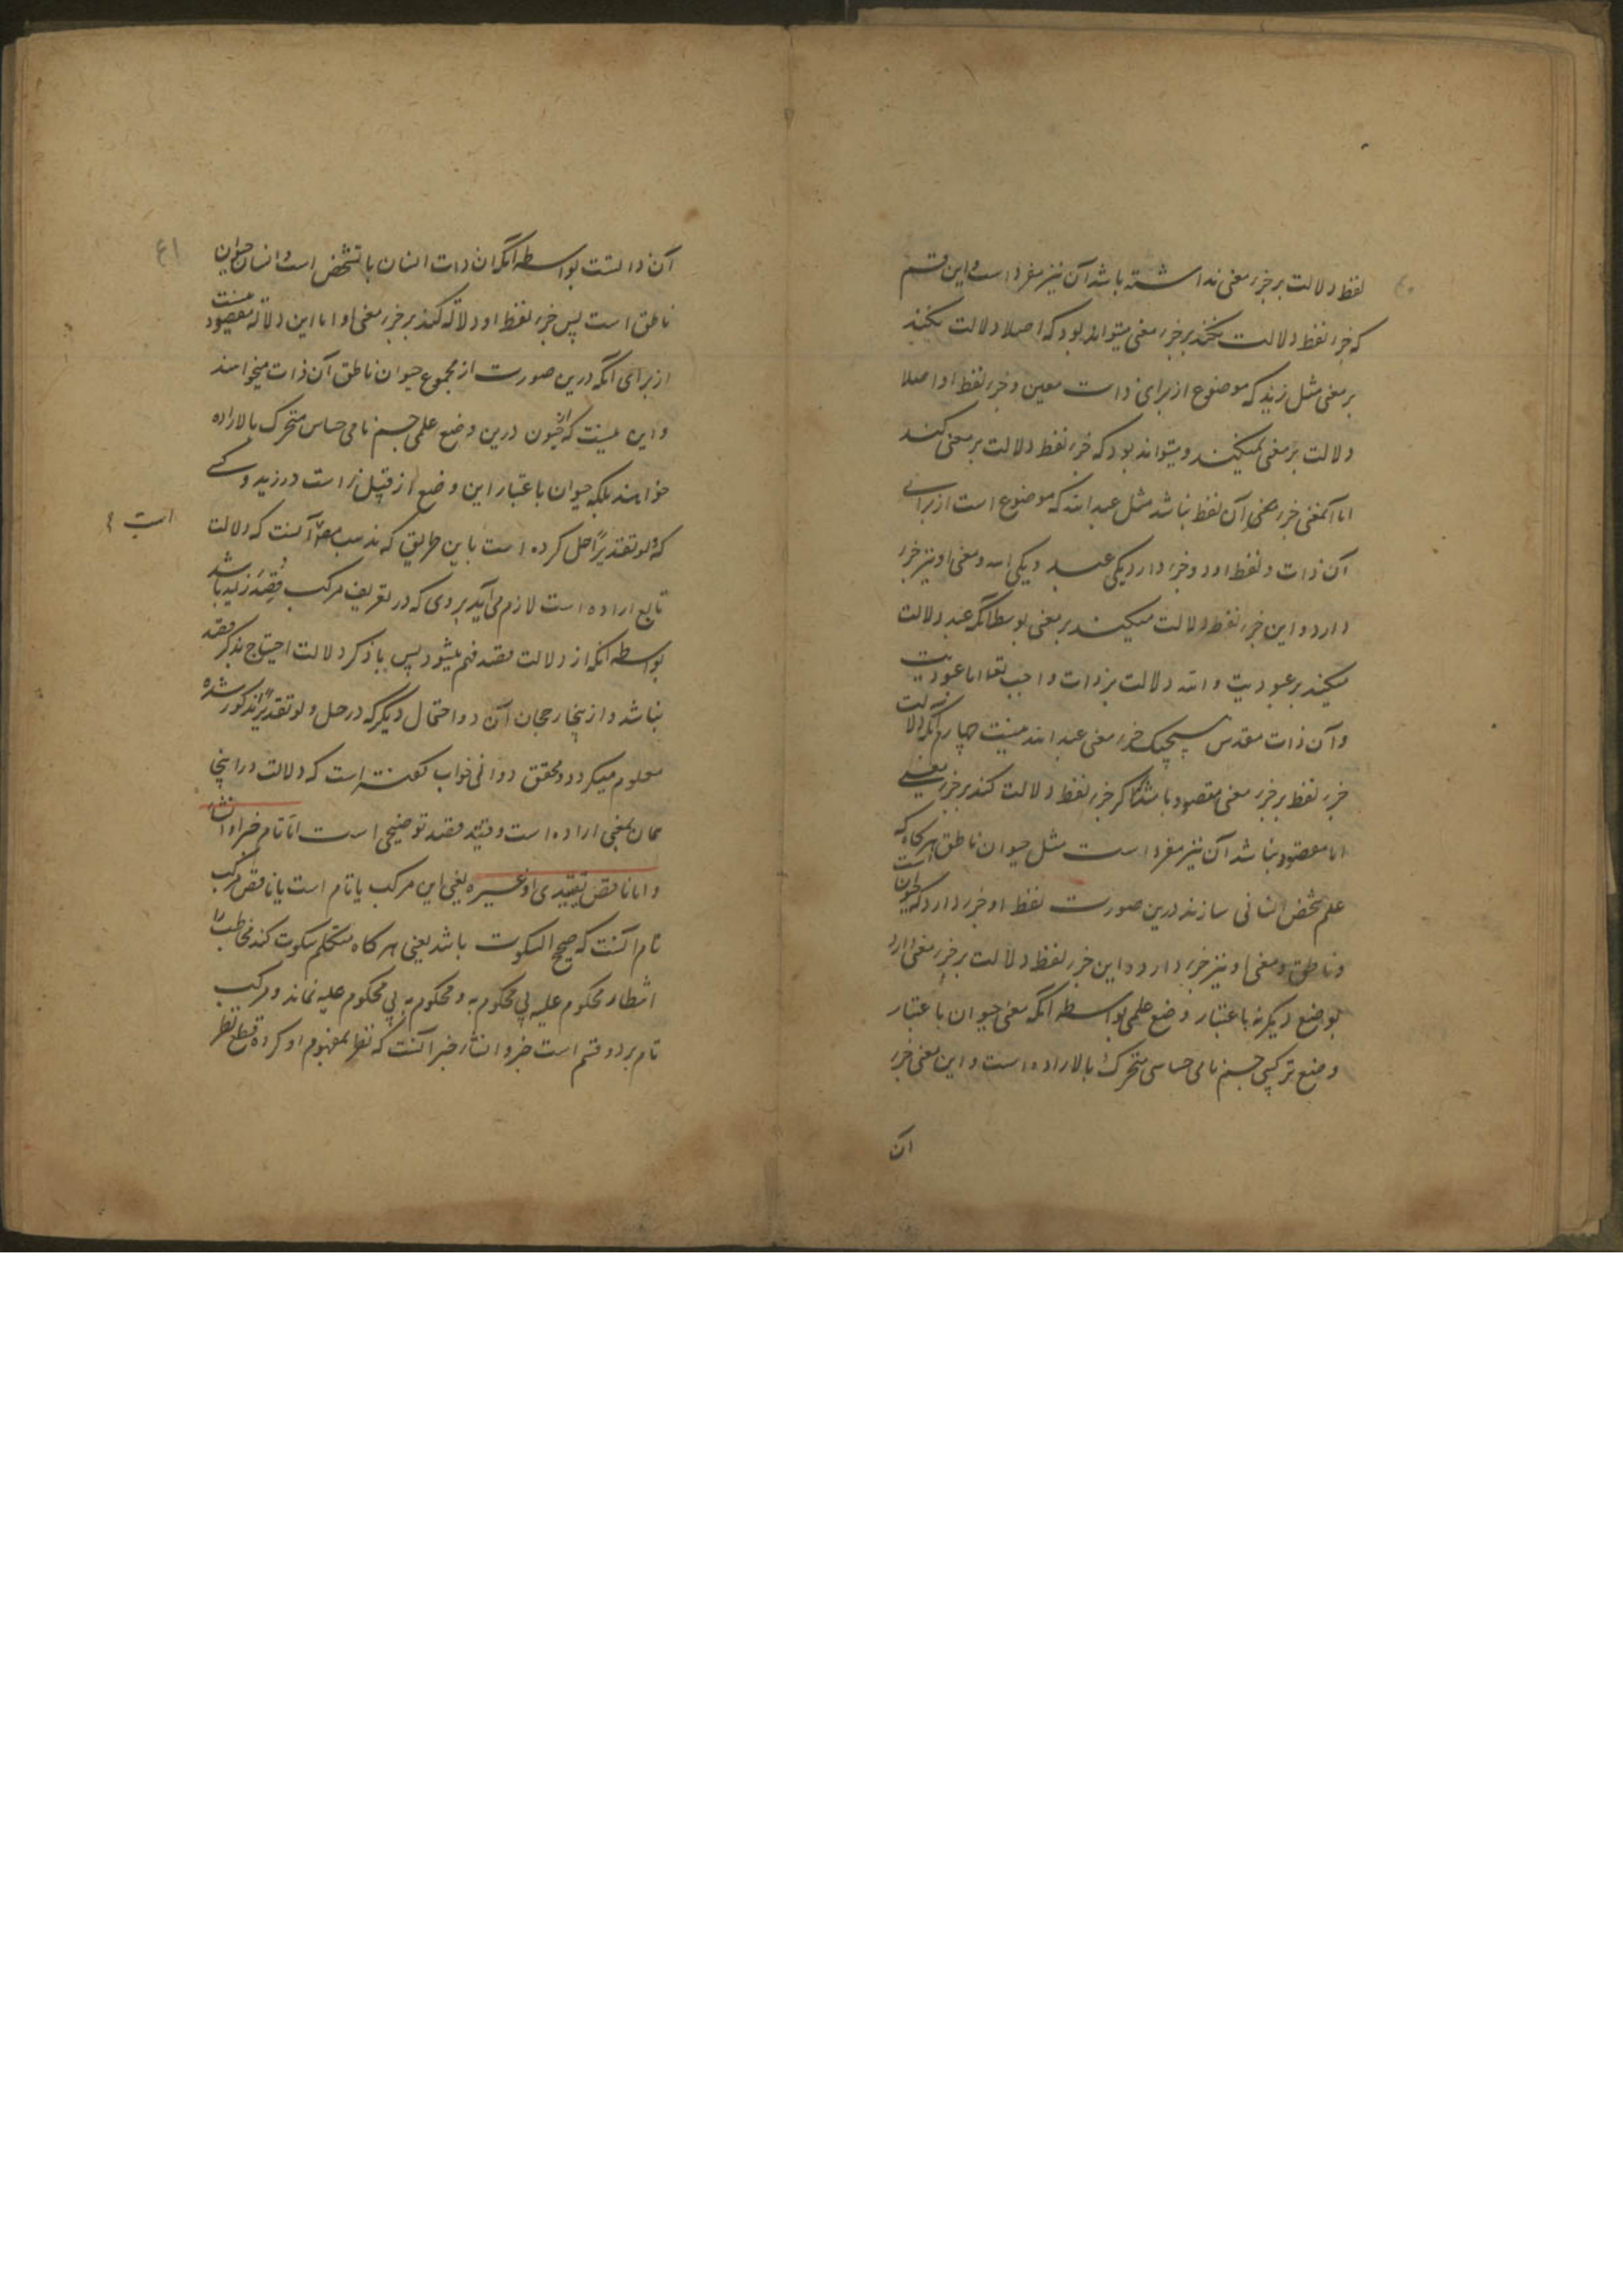 لفظ دلالت بر جزء معنی نداشته باشد آن نیز مفرد است و این قسم
که جزء لفظ دلالت نکند بر جزء معنی میتواند بود که اصلا دلالت نکند
بر معنی مثل زید که موضوع از برای ذات معین و جزء لفظ او اصلا
دلالت بر معنی نمیکند و میتواند بود که جزء لفظ دلالت بر معنی کند
اما آنمعنی جزء معنی آن لفظ نباشد مثل عبدالله که موضوع است از برای
آن ذات و لفظ او دو جزء دارد یکی عبد و یکی الله و معنی او نیز جزء
دارد و این جزء لفظ دلالت میکند بر معنی بوسطه آنکه عبد دلالت
میکند بر عبودیت و الله دلالت بر ذات واجب تعا اما عبودیت
و آن ذات مقدس هیچیک جزء معنی عبدالله نیست چهارم آنکه دلالت
جزء لفظ بر جزء معنی مقصود باشد که اگر جزء لفظ دلالت کند بر جزء معنی
اما مقصود نباشد آن نیز مفرد است مثل حیوان ناطق هرگاه که
علم شخص انسانی سازند درین صورت لفظ او جزء دارد که حیوان است
و ناطق و معنی او نیز جزء دارد و این جزء لفظ دلالت بر جزء معنی دارد
بوضع دیگر نه باعتبار وضع علمی بواسطه آنکه معنی حیوان باعتبار
وضع ترکیبی جسم نامی حساس متحرک بالاراده است و این معنی جزء
آن
۴۱
آن ذاتست بواسطه آنکه آن ذات انسان با تشخص است و انسان حیوان
ناطق است پس جزء لفظ او دلالة کند بر جزء معنی او اما این دلالة مقصود نیست
از برای آنکه درین صورت از مجموع حیوان ناطق آن ذات میخواهند
و این نیست که از حیوان درین وضع علمی جسم نامی حساس متحرک بالاراده
خواهند بلکه حیوان باعتبار این وضع از قبیل زا است در زید و کسی
که ولو تقدیرًا حل کرده است باین طریق که مذهب مص آنست که دلالت
تابع اراده است لازم می‌آید بر وی که در تعریف مرکب قصد زاید باشد
بواسطه آنکه از دلالت قصد فهم میشود پس با ذکر دلالت احتیاج بذکر قصد
نباشد و از ینجا رجحان آن دو احتمال دیگر که در حل ولو تقدیرًا مذکور شده
معلوم میگردد و محقق دوانی جواب گفته است که دلالت در اینجا
همان بمعنی اراده است و قید قصد توضیحی است اما تام خبر او انشاء
و اما ناقص تقییدی او غیره یعنی این مرکب یا تام است یا ناقص مرکب
تام آنست که صحیح السکوت باشد یعنی هرگاه متکلم سکوت کند مخاطب را
انتظار محکوم علیه بی محکوم به و محکوم به بی محکوم علیه نماند و مرکب
تام بر دو قسم است خبر و انشاء خبر آنست که نظر بمفهوم او کرده قطع نظر